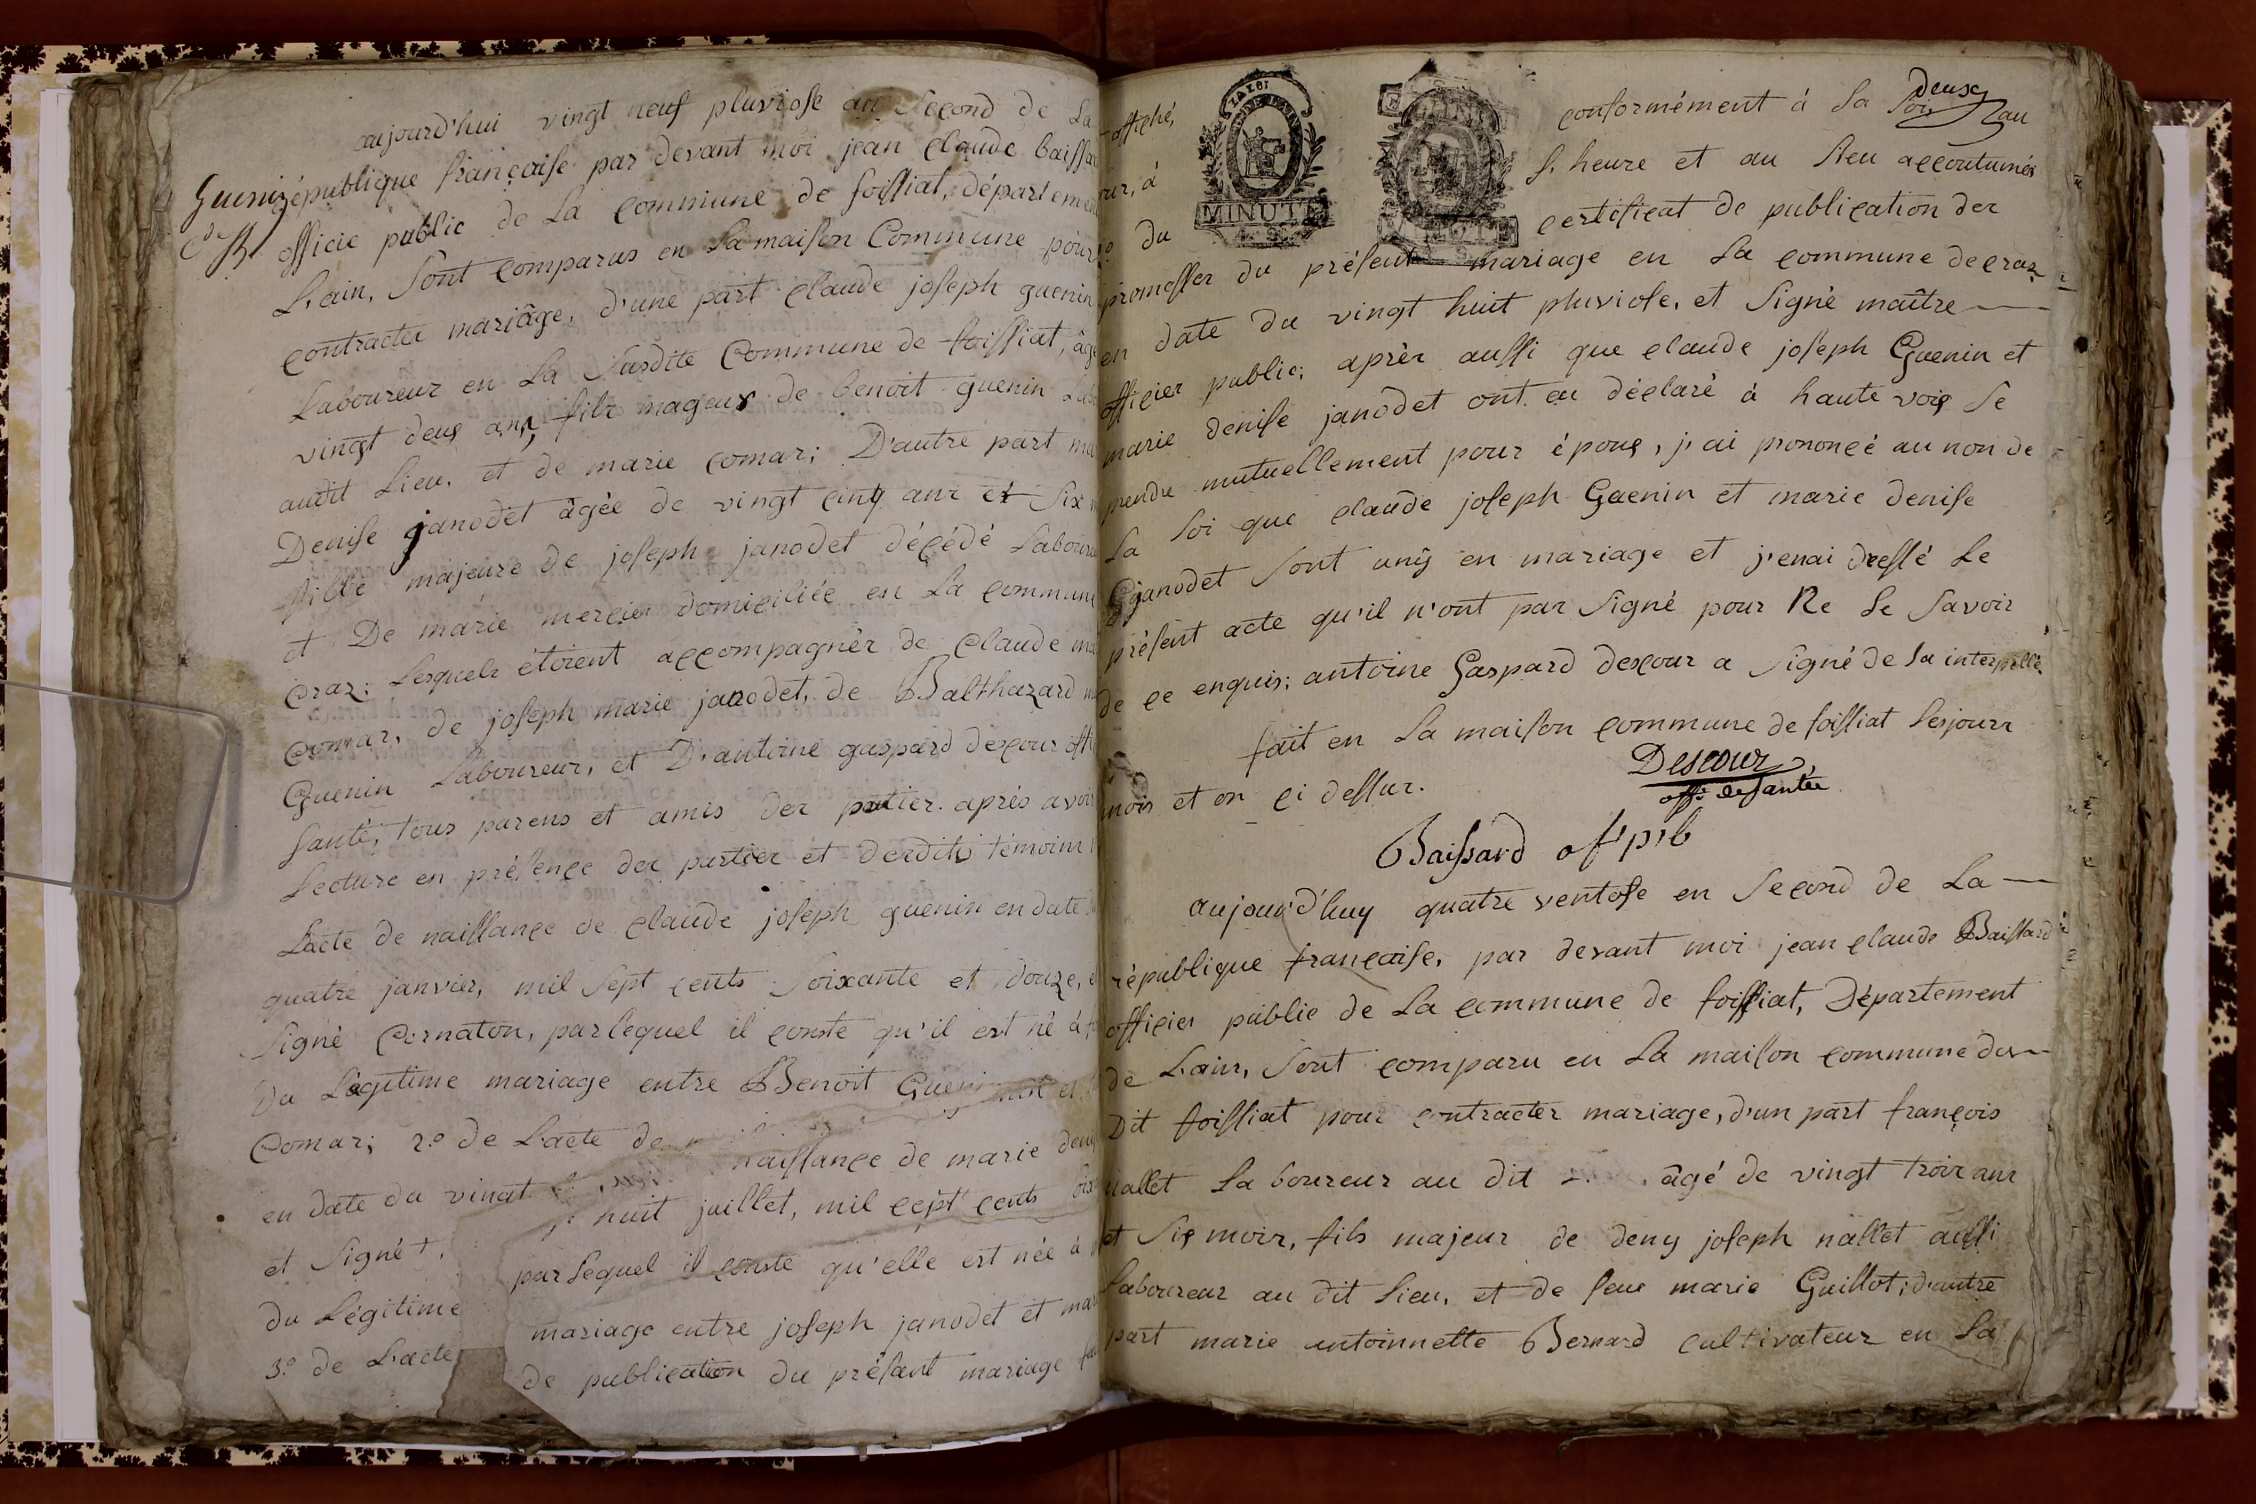 aujourd'hui vingt neuf pluviose an Second de La
Guenin république françaïse par devant moi jean Claude baissa
officie public de La Commune de foissiat, départemen
L'ain, Sont comparus en La maison Commune pour
contracter mariâge, d'une part Claude joseph guenin
Laboureur en La Susdite Commune de foissiat, âgé
vingt deux ans, fils mageur de benoit guenin Lab
audit Lieu, et de marie comar; D'autre part ma
Denise janodet âgée de vingt cinq ans et Six m
fille majeure de joseph janodet décédé Laboureu
et De marie mercier domiciliée en La commune
Craz; Lesquels étoient accompagnés de Claude ma
Comar, de joseph marie janodet, de Balthazard
Guenin Laboureur, et D'antoine gaspard descour offi
Santé, tous parens et amis des partier. après avoir
Lecture en présence des parties et desdits témoins
Lacte de naissance de Claude joseph guenin en date
quatre janvier, mil Sept cents Soixante et douze,
Signé Cornaton, par lequel il conste qu'il est né à
Du Légitime mariage entre Benoit Guenin et
Comar; 2.º de L'acte de naissance de marie deny
en date du vingt huit juillet, mil cept cents
et Signé par Lequel il conste qu'elle est née à
du Légitime mariage entre joseph janodet et mar
3.º de L'acte de publication du présant mariage
affiché, conformément à La Loi deux au
MINUTE
L'heure et au Lieu accoutumés
du certificat de publication des
promesses du présent mariage en La commune de craz
en date du vingt huit pluviose, et Signé maître
officier public; après aussi que Claude joseph Guenin et
marie denise janodet ont eu déclaré à haute voix Se
prendre mutuellement pour époux, j'ai prononcé au non de
La Loi que Claude joseph Guenin et marie denise
janodet Sont uny en mariage et j'enai dressé Le
présent acte qu'il n'ont pas Signé pour Ne Le Savoir
de ce enquis; antoine Gaspard descour a Signé de La interpellé
fait en La maison commune de foissiat Lesjours
mois et an ci dessus.
Descour
offi. de santée
Baissard of. p.b
aujourd'huy quatre ventose en Second de La
république françaïse, par devant moi jean Claude Baissard
officier public de La commune de foissiat, Département
de L'ain, Sont comparu en La maison commune du
Dit foissiat pour contracter mariage, d'un part françois
nallet Laboureur au dit âgé de vingt trois ans
et Six mois, fils majeur de deny joseph nallet aussi
Laboureur au dit Lieu, et de feue marie Guillot; d'autre
part marie antoinnette Bernard cultivateur en La